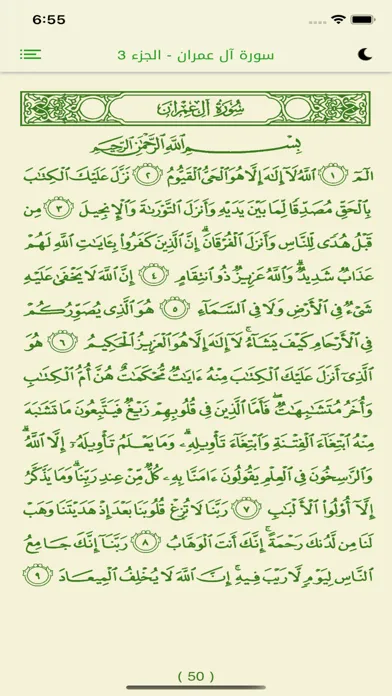 6:55
سورة آل عمران - الجزء 3
سُورَةُ آلِ عِمْرَانَ
بِسْمِ اللَّهِ الرَّحْمَٰنِ الرَّحِيمِ
الٓمٓ ١ اللَّهُ لَآ إِلَٰهَ إِلَّا هُوَ الْحَىُّ الْقَيُّومُ ٢ نَزَّلَ عَلَيْكَ الْكِتَٰبَ
بِالْحَقِّ مُصَدِّقًا لِّمَا بَيْنَ يَدَيْهِ وَأَنزَلَ التَّوْرَىٰةَ وَالْإِنجِيلَ ٣ مِن
قَبْلُ هُدًى لِّلنَّاسِ وَأَنزَلَ الْفُرْقَانَ ۗ إِنَّ الَّذِينَ كَفَرُوا۟ بِـَٔايَٰتِ اللَّهِ لَهُمْ
عَذَابٌ شَدِيدٌ ۗ وَاللَّهُ عَزِيزٌ ذُو انتِقَامٍ ٤ إِنَّ اللَّهَ لَا يَخْفَىٰ عَلَيْهِ
شَىْءٌ فِى الْأَرْضِ وَلَا فِى السَّمَآءِ ٥ هُوَ الَّذِى يُصَوِّرُكُمْ
فِى الْأَرْحَامِ كَيْفَ يَشَآءُ ۚ لَآ إِلَٰهَ إِلَّا هُوَ الْعَزِيزُ الْحَكِيمُ ٦ هُوَ
الَّذِىٓ أَنزَلَ عَلَيْكَ الْكِتَٰبَ مِنْهُ ءَايَٰتٌ مُّحْكَمَٰتٌ هُنَّ أُمُّ الْكِتَٰبِ
وَأُخَرُ مُتَشَٰبِهَٰتٌ ۖ فَأَمَّا الَّذِينَ فِى قُلُوبِهِمْ زَيْغٌ فَيَتَّبِعُونَ مَا تَشَٰبَهَ
مِنْهُ ابْتِغَآءَ الْفِتْنَةِ وَابْتِغَآءَ تَأْوِيلِهِۦ ۗ وَمَا يَعْلَمُ تَأْوِيلَهُۥٓ إِلَّا اللَّهُ ۗ
وَالرَّٰسِخُونَ فِى الْعِلْمِ يَقُولُونَ ءَامَنَّا بِهِۦ كُلٌّ مِّنْ عِندِ رَبِّنَا ۗ وَمَا يَذَّكَّرُ
إِلَّآ أُو۟لُوا۟ الْأَلْبَٰبِ ٧ رَبَّنَا لَا تُزِغْ قُلُوبَنَا بَعْدَ إِذْ هَدَيْتَنَا وَهَبْ
لَنَا مِن لَّدُنكَ رَحْمَةً ۚ إِنَّكَ أَنتَ الْوَهَّابُ ٨ رَبَّنَآ إِنَّكَ جَامِعُ
النَّاسِ لِيَوْمٍ لَّا رَيْبَ فِيهِ ۚ إِنَّ اللَّهَ لَا يُخْلِفُ الْمِيعَادَ ٩
( 50 )